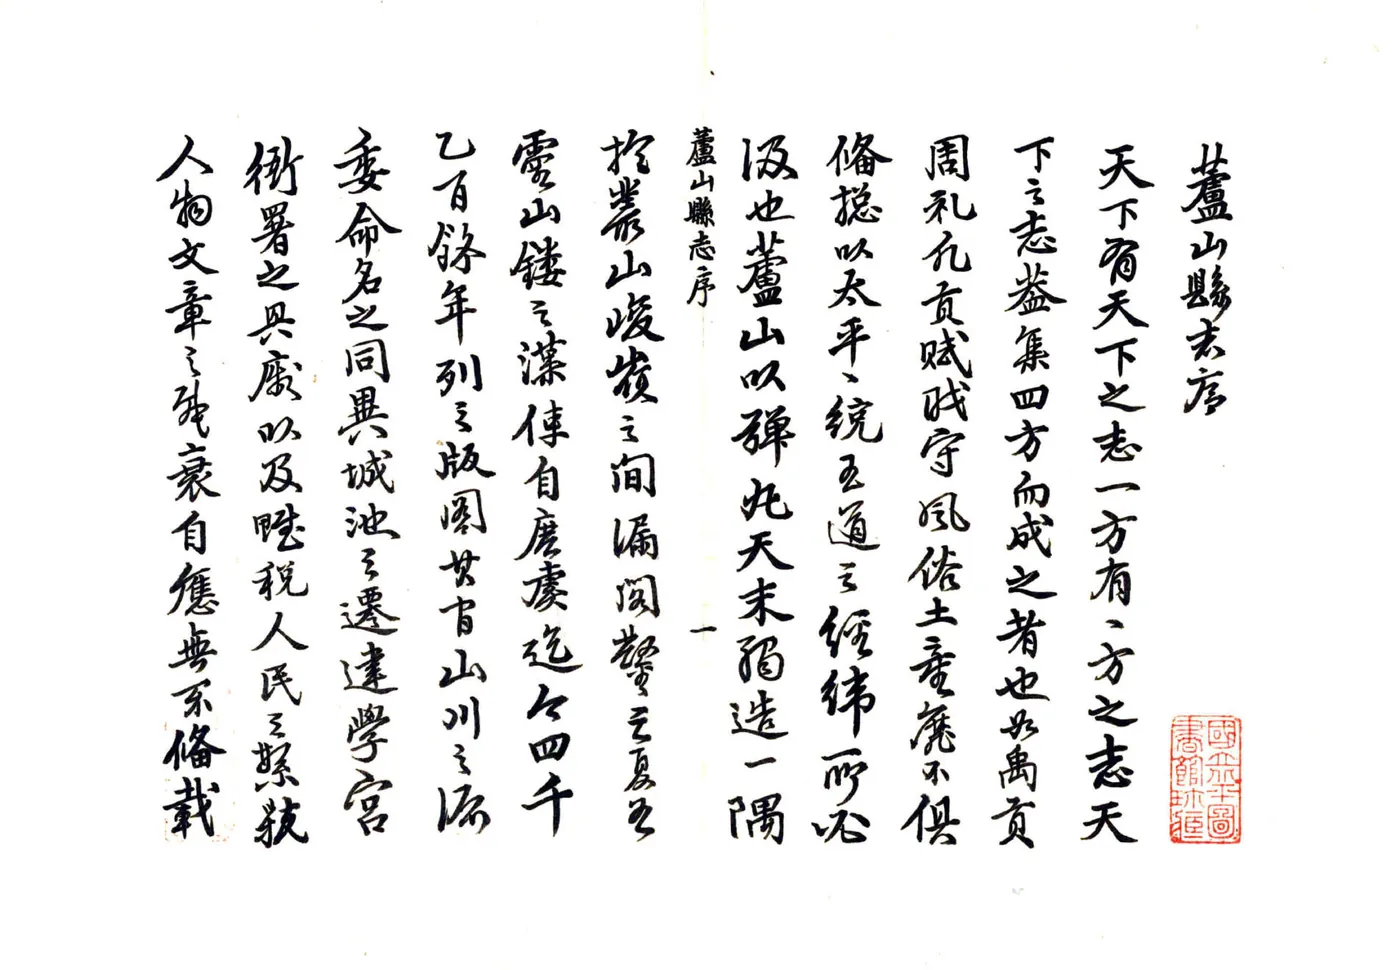 蘆山縣志序
天下有天下之志一方有〻方之志天
下之志葢集四方而成之者也如禹貢
周礼凡貢賦戝守風俗土産靡不俱
俻捴以太平〻統王道之經緯所必
汲也蘆山以彈丸天末獨造一隅
蘆山縣志序
一
扵叢山峻嶺之間漏閣鑿之夏書
靈山鏤之漢使自唐虞迄今四千
乙百餘年列之版圖其官山川之源
委命名之同異城池之遷建學宮
衙署之興廢以及鹽税人民之繁耗
人物文章之盛衰自應無不俻載
國立北平圖書館珍藏